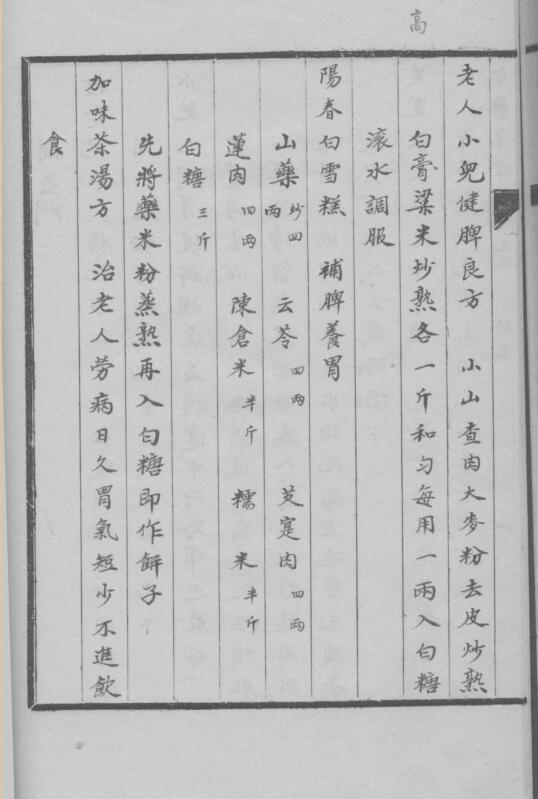 高
老人小兒健脾良方　小山查肉大麥粉去皮炒熟
白膏粱米炒熟各一斤和勻每用一兩入白糖
滚水調服
陽春白雪糕　補脾養胃
山藥炒四兩　云苓四兩　芡寔肉四兩
蓮肉四兩　陳倉米半斤　糯米半斤
白糖三斤
先將藥米粉蒸熟再入白糖即作餅子
加味茶湯方　治老人勞病日久胃氣短少不進飲
食